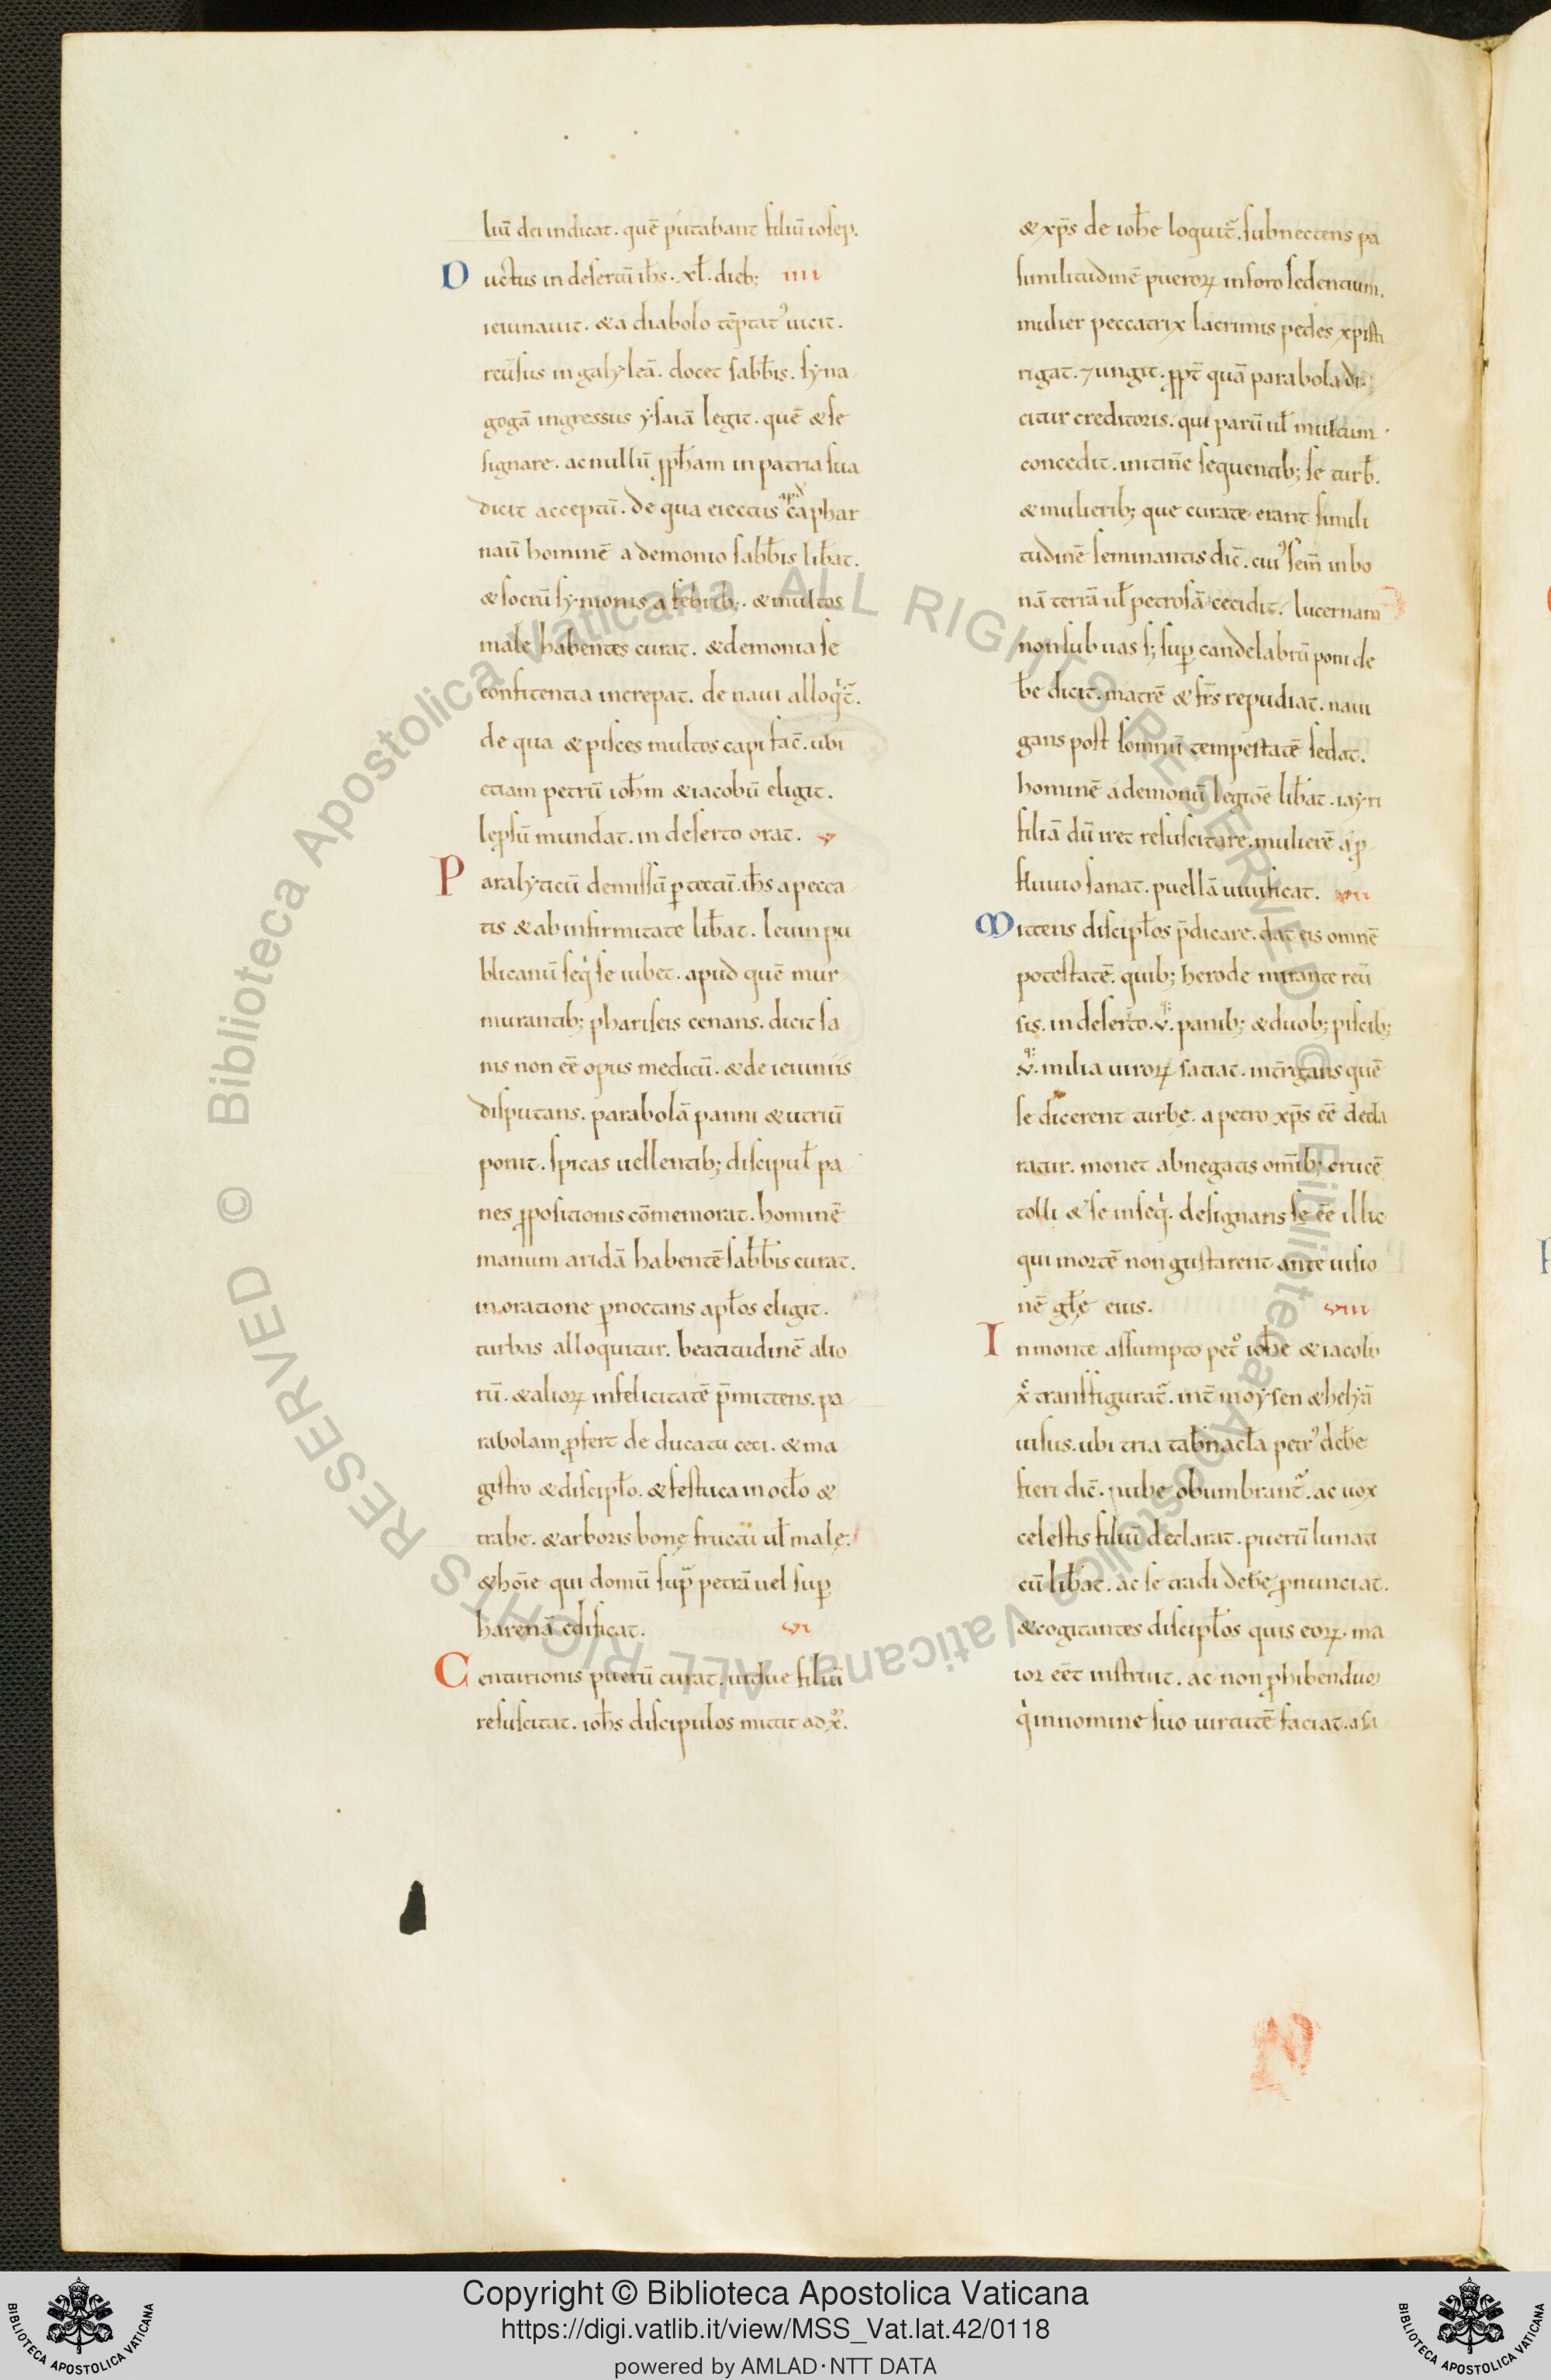 liū dei indicat. quē putabant filiū iosep.
Ductus in desertū ih̄s. xl. dieb; iiii
ieiunauit. & a diabolo tēptatꝰ uicit.
reūsus in galyleā. docet sabb̄is. syna
gogā ingressus ysaiā legit. quē & se
signare. ac nullū ꝓph̄am in patria sua
dicit acceptū. de qua eiectus apd̄ caphar
naū hominē a demonio sabb̄is lib̄at.
& socrū symonis a febrib;. & multos
male habentes curat. & demonia se
confitentia increpat. de naui alloqⁱt᷑.
de qua & pisces multos capi fac̄. ubi
etiam petrū ioh̄m & iacobū eligit.
lep̄sū mundat. in deserto orat. v
Paralyticū demissū ꝑ tectū. ih̄s a pecca
tis & ab infirmitate lib̄at. leuin pu
blicanū seqⁱ se iubet. apud quē mur
murantib; phariseis cenans. dicit sa
nis non eē opus medicū. & de ieiuniis
disputans. parabolā panni & utriū
ponit. spicas uellentib; discipul̄ pa
nes ꝓpositionis cōmemorat. hominē
manum aridā habentē sabb̄is curat.
in oratione ꝑnoctans apl̄os eligit.
turbas alloquitur. beatitudinē alio
rū. & alioꝝ infelicitatē p̄mittens. pa
rabolam ꝓfert de ducatu ceci. & ma
gistro & discipl̄o. & festuca in ocl̄o &
trabe. & arboris bonę fructū ul̄ malę.
& hoīe qui domū sup̄ petrā uel suꝑ
harenā edificat. vi
Centurionis puerū curat. uidue filiū
resuscitat. ioh̄s discipulos mittit ad xᷤ.
& xp̄s de ioh̄e loquit᷑. subnectens pa
similitudinē pueroꝝ in foro sedentium.
mulier peccatrix lacrimis pedes xpisti
rigat. ⁊ ungit. ꝓpt᷑ quā parabola di
citur creditoris. qui parū ul̄ multum
concedit. in itin̄e sequentib; se turb̄.
& mulierib; que curate erant simili
tudinē seminantis dic̄. cuiꝰ sem̄ in bo
nā terrā ul̄ petrosā cecidit. lucernam
non sub uas s; suꝑ candelabrū poni de
b̄e dicit. matrē & fr̄s repudiat. naui
gans post somnū tempestatē sedat.
hominē a demonū legiōe lib̄at. iayri
filiā dū iret resuscitare. mulierē a ꝓ
fluuio sanat. puellā uiuificat. vii
Mittens discipl̄os p̄dicare. dat eis omnē
potestatē. quib; herode mirante reū
sis. in deserto. v. panib; & duob; piscib;
v. milia uiroꝝ satiat. int̄rogans quē
se dicerent turbę. a petro xp̄s eē decla
ratur. monet abnegatis om̄ib; crucē
tolli & se inseqⁱ. designans se eē illic
qui mortē non gustarent ante uisio
nē gl̄ę eius. viii
In monte assumpto pet͛o ioh̄e & iacobo
x͛ transfigurat᷑. int̄ moysen & helyā
uisus. ubi tria tab̄nacl̄a petrꝰ deb̄e
fieri dic̄. nube obumbrant᷑. ac uox
celestis filiū declarat. puerū lunati
cū lib̄at. ac se tradi deb̄e ꝓnunciat.
& cogitantes discipl̄os quis eoꝝ. ma
ior eēt instruit. ac non ꝓhibendū
qⁱ in nomine suo uirtutē faciat. a sa
Copyright © Biblioteca Apostolica Vaticana
https://digi.vatlib.it/view/MSS_Vat.lat.42/0118
powered by AMLAD·NTT DATA
BIBLIOTECA APOSTOLICA VATICANA
BIBLIOTECA APOSTOLICA VATICANA
© Biblioteca Apostolica Vaticana ALL RIGHTS RESERVED © Biblioteca Apostolica Vaticana ALL RIGHTS RESERVED